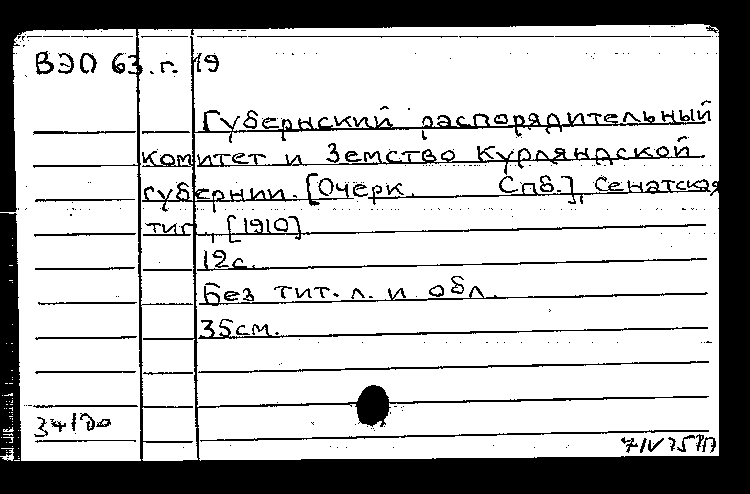 ВЭО 63.г. 19
Губернский распорядительный
комитет и Земство Курляндской
губернии. [Очерк. Спб.], Сенатская
тип., [1910]
12с.
Без тит. л. и обл.
35см.
7/IV 75